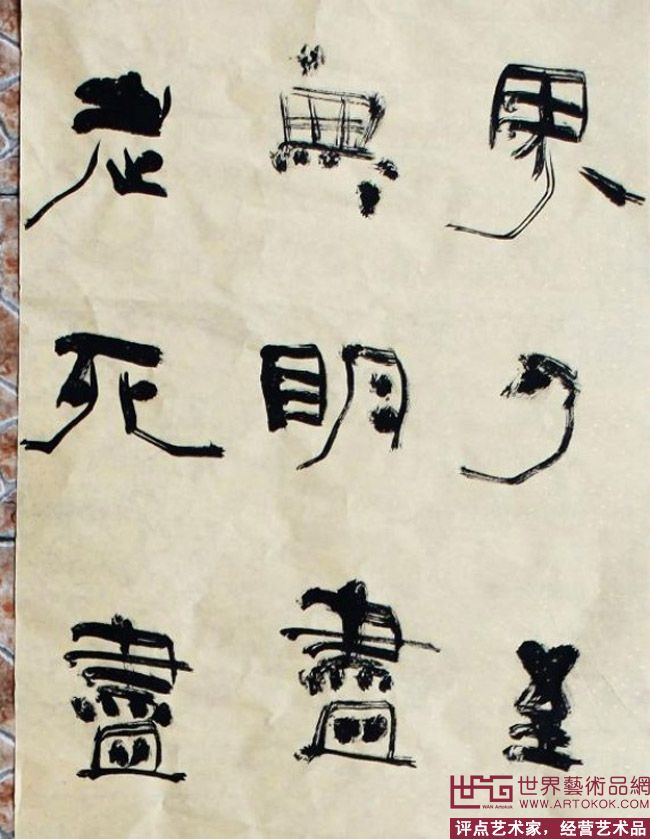 界乃至
無明盡
老死盡
世界藝術品網
WAN Artokok
WWW.ARTOKOK.COM
评点艺术家，经营艺术品